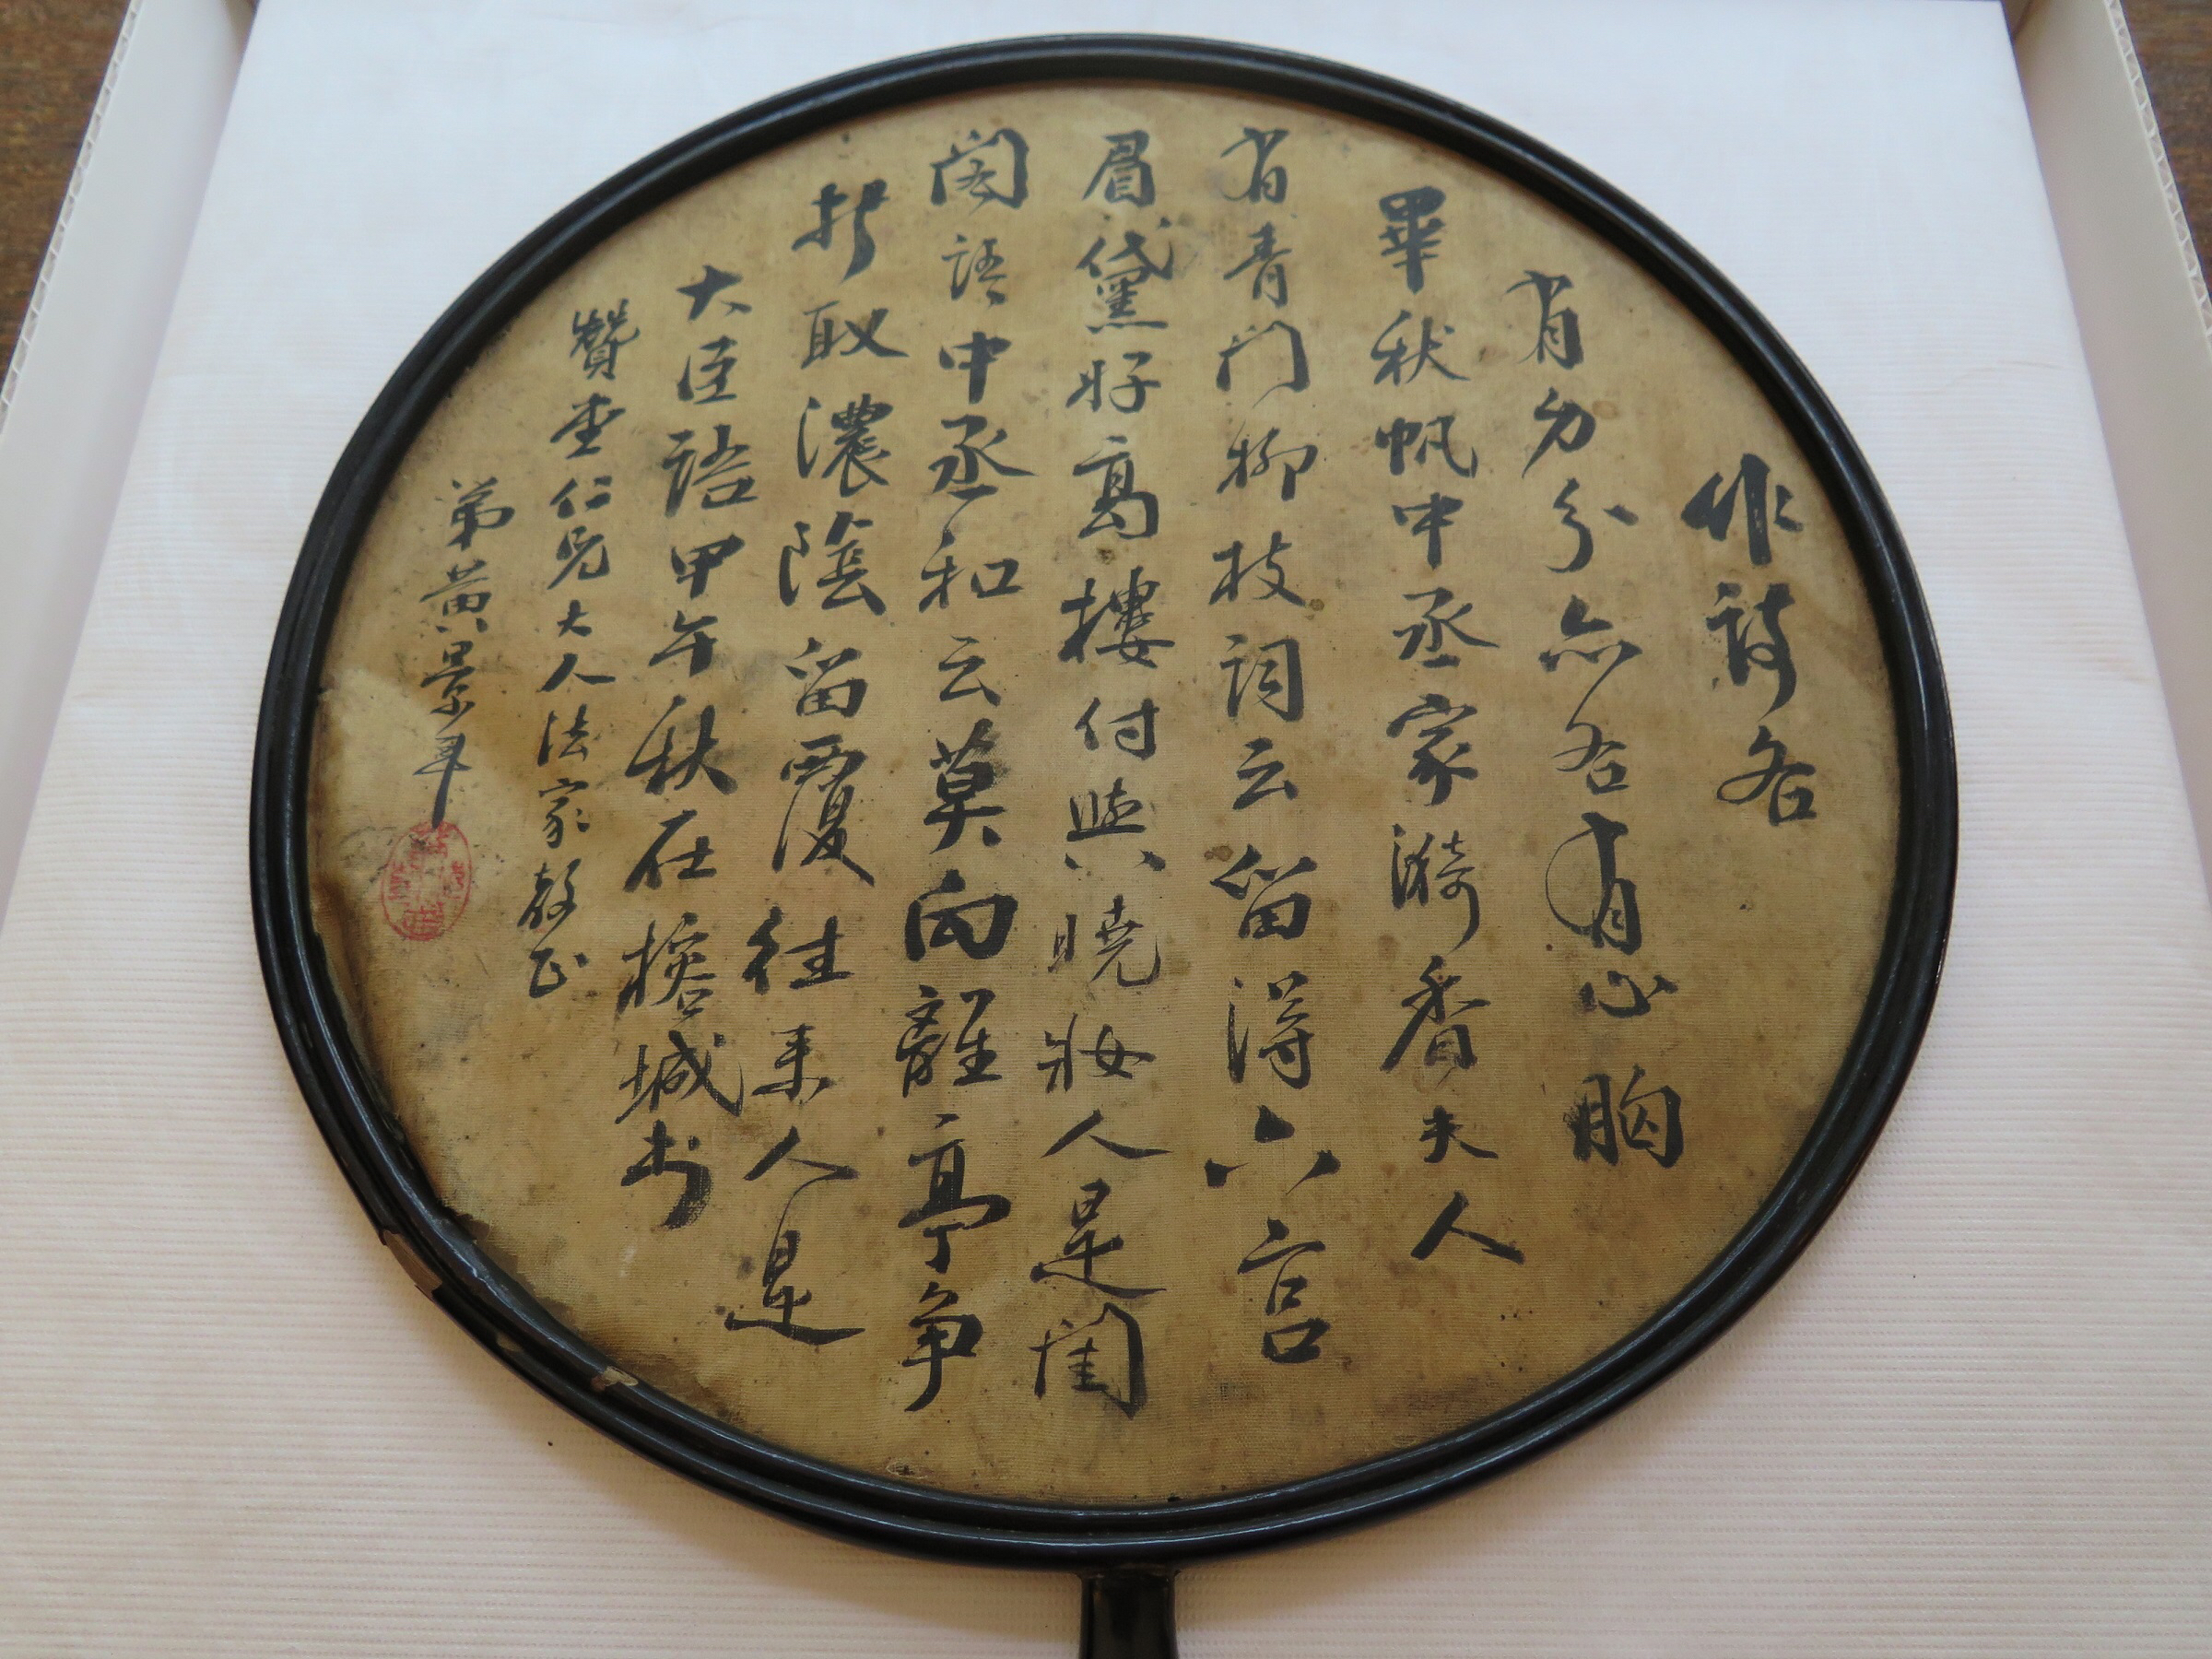 作詩各
有身分亦各有心胸
畢秋帆中丞家漪香夫人
有青门柳枝词云留得六宫
眉黛好高樓付與曉妝人是閨
閤語中丞和云莫向離亭争
折取濃陰留覆往來人是
大臣語甲午秋在榕城书
贊堂仁兄大人法家教正
弟黄景